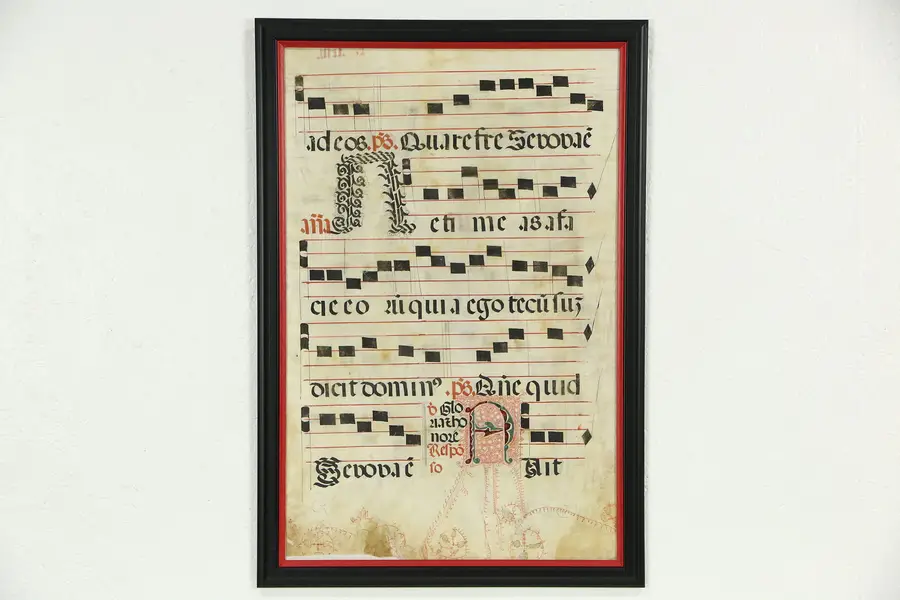 ad eos. ps. Quare fre Seuouaē
aña N e ti me as a fa
cie eo rū qui a ego tecū suȝ
dicit dominꝰ. ps. Qñe quid
Seuouaē
℣ Glo
ria et ho
nore
Respō
so
A Ait